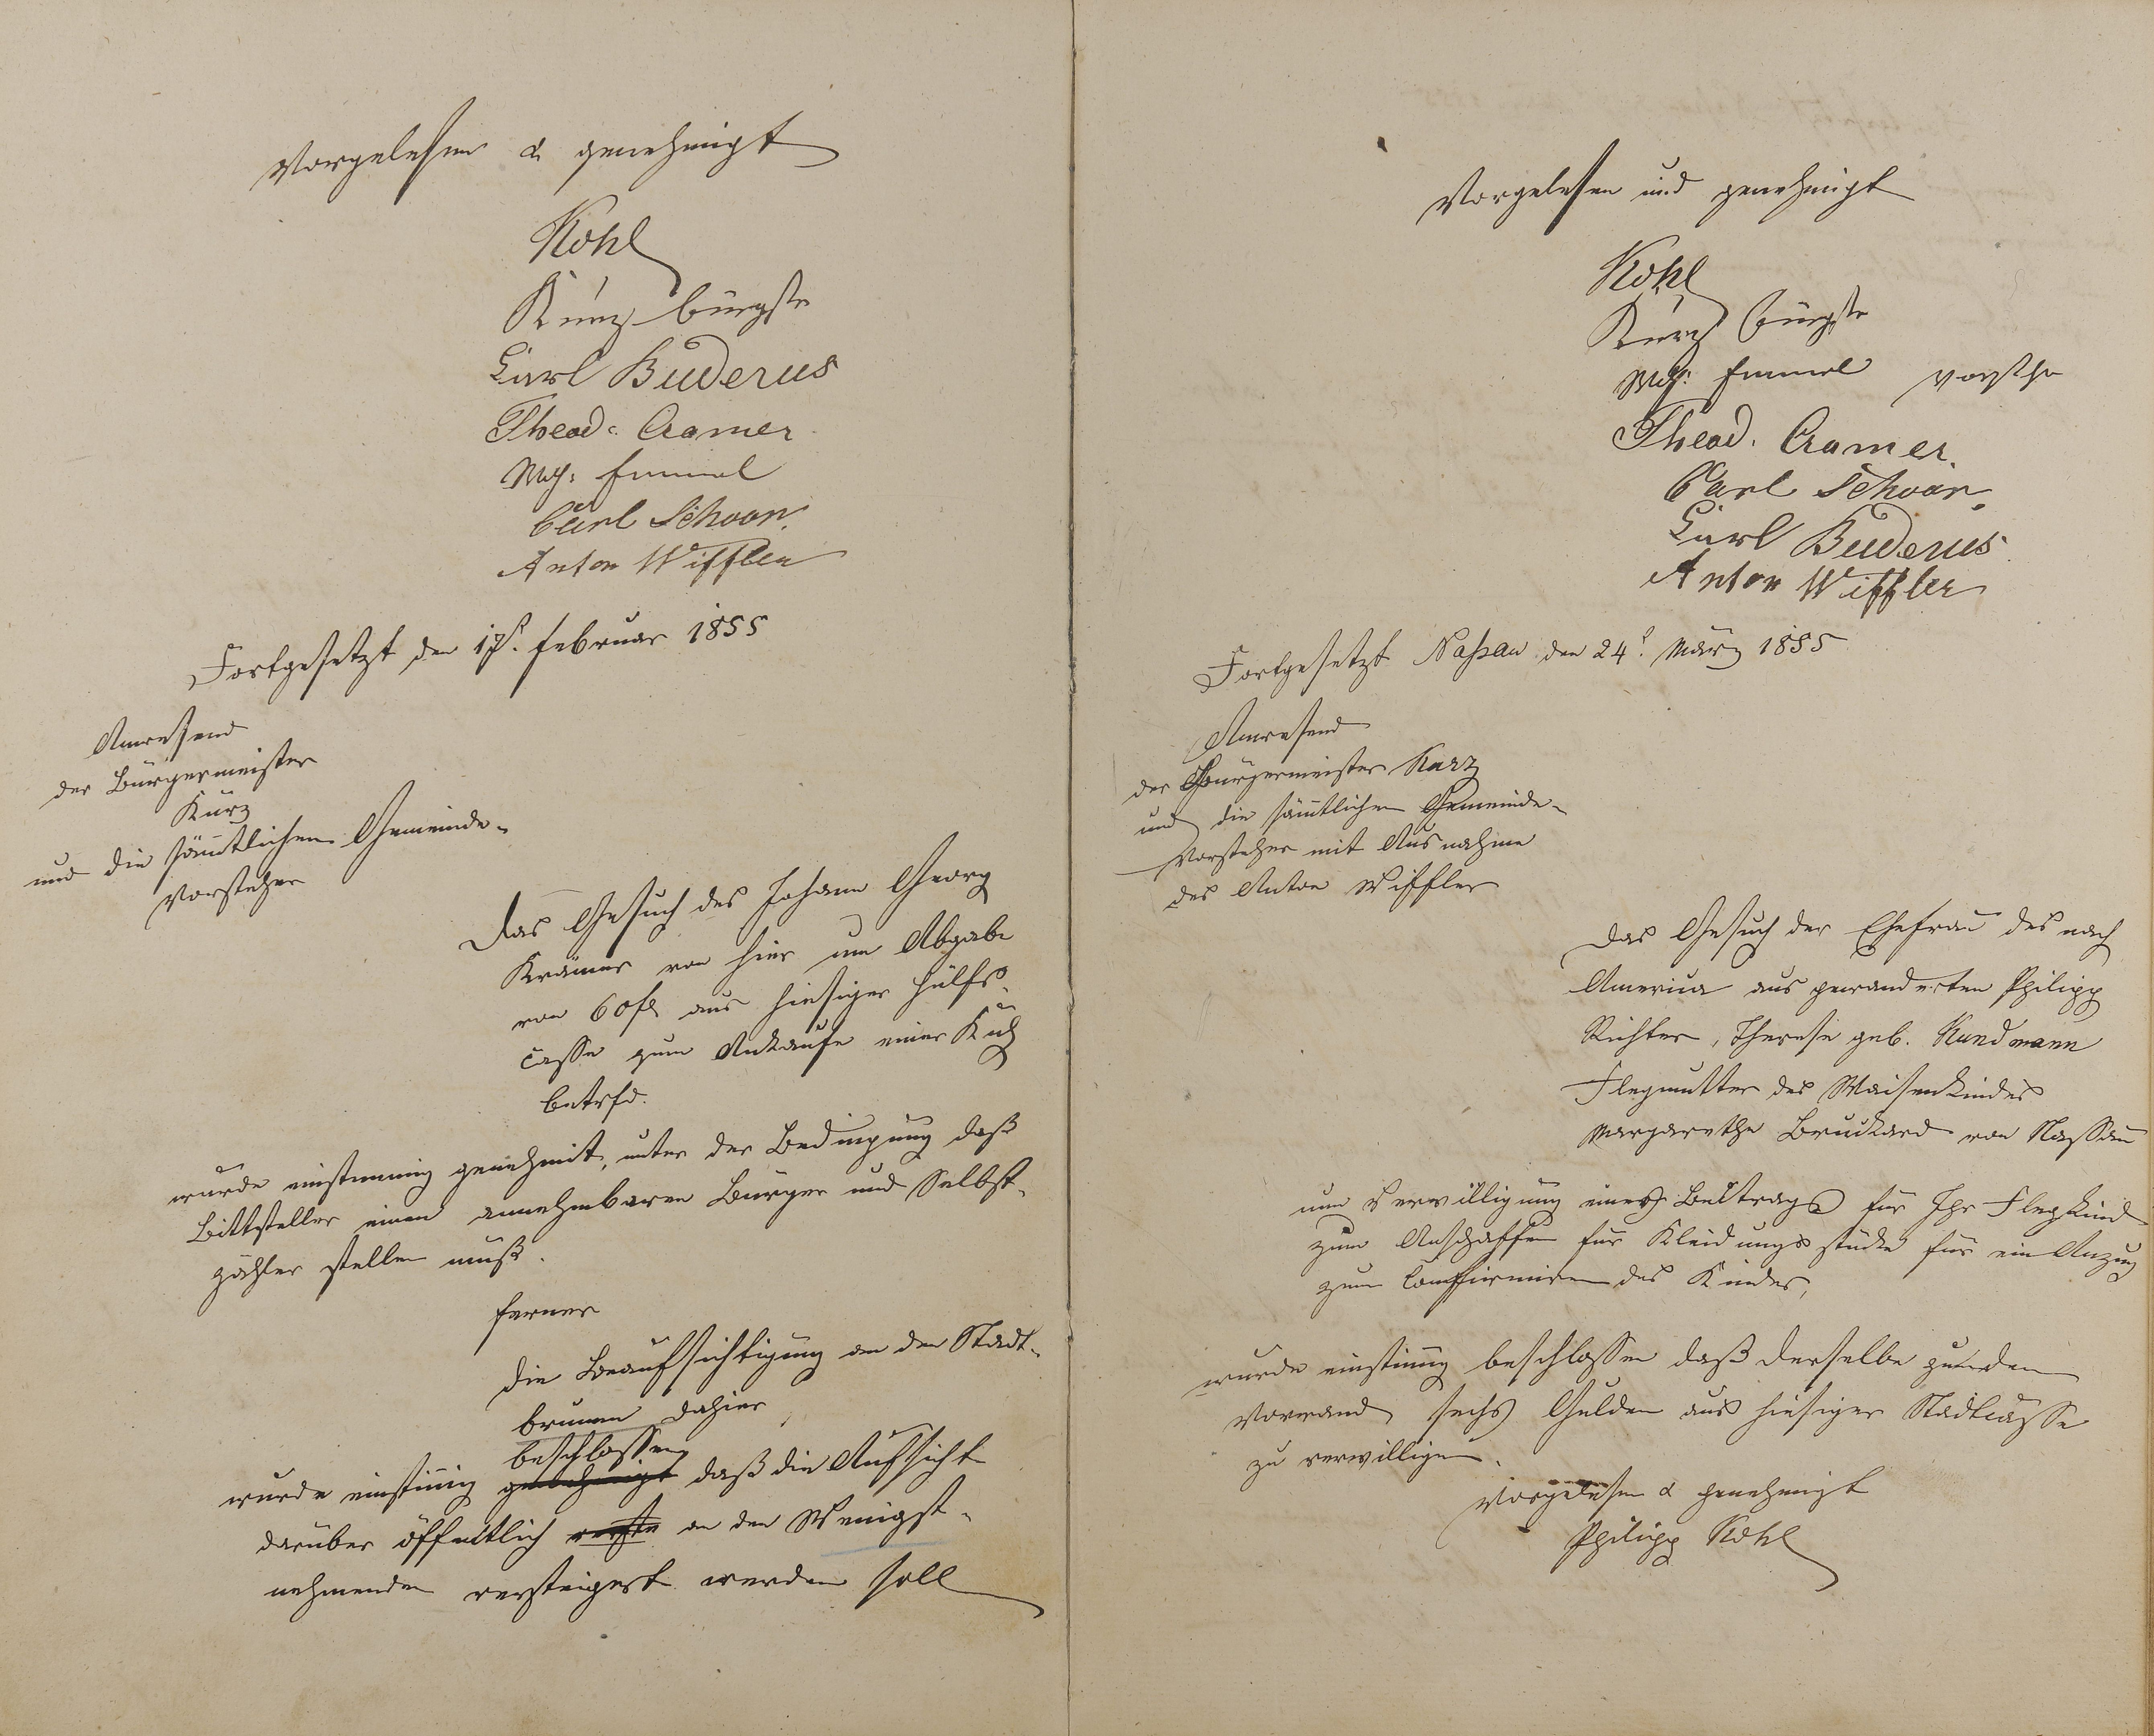 Vorgelesen & genehmigt
Kohl
Kurz bürgstr
Carl Buderus
Theod. Cramer
Wilh: Emmel
Carl Schoor.
Anton Wiffler
Fortgesetzt den 17t. Februar 1855
Anwesend
der Bürgermeister
Kurz
und die sämtlichen Gemeinde-
vorsteher
Das Gesuch des Johann Georg
Krämer von hier um Abgabe
von 60 fl aus hiesiger Hülfs-
casse zum Ankaufe einer Kuh
betrfd.
wurde einstimmig genehmit, unter der Bedingung daß
Bittsteller einen annehmbaren Bürgen und Selbst-
zahler stellen muß.
ferner
die Beaufsichtigung an den Stadt-
brunnen dahier
beschlossen
wurde einstimig genehmigt daß die Aufsicht
darüber öffentlich an den Wenigst-
nehmenden versteigert werden soll
Vorgelesen und genehmigt
Kohl
Kurz bürgstr
Wilh: Emmel vorsthr
Theod. Cramer.
Carl Schoor,
Carl Buderus
Anton Wiffler
Fortgesetzt Nassau den 24t. März 1855
Anwesend
der Bürgermeister Kurz
und die sämtlichen Gemeinde-
vorsteher mit Ausnahme
des Anton Wiffler
Das Gesuch der Ehefrau des nach
America aus gewanderten Philipp
Richter, Therese geb. Kundmann
Flegmutter des Waisenkindes
Margarethe Bruckard von Nassau
um Verwilligung eines Beitrags für Ihr Flegkind
zum Anschaffen für Kleidungsstücke für ein Anzug
zum Confirmiren des Kindes,
wurde einstimig beschlossen daß derselbe zu den
Vorwand sechs Gulden aus hiesiger Stadtcasse
zu verwilligen.
Vorgelesen & genehmigt
Philipp Kohl